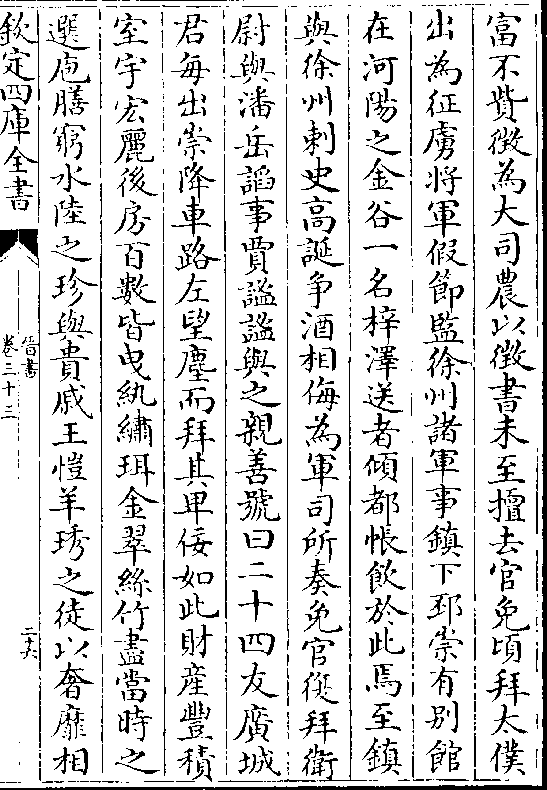 富不貲徵為大司農以徵書未至擅去官免頃拜太僕
出為征虜將軍假節監徐州諸軍事鎮下邳崇有别館
在河陽之金谷一名梓澤送者傾都帳飲於此焉至鎮
與徐州刺史高誕爭酒相侮為軍司所奏免官復拜衛
尉與潘岳謟事賈謐謐與之親善號曰二十四友廣城
君每出崇降車路左望塵而拜其卑佞如此財産豐積
室宇宏麗後房百數皆曳紈繡珥金翠絲竹盡當時之
選庖膳窮水陸之珍與貴戚王愷羊琇之徒以奢靡相
欽定四庫全書
晉書
卷三十三
二十六